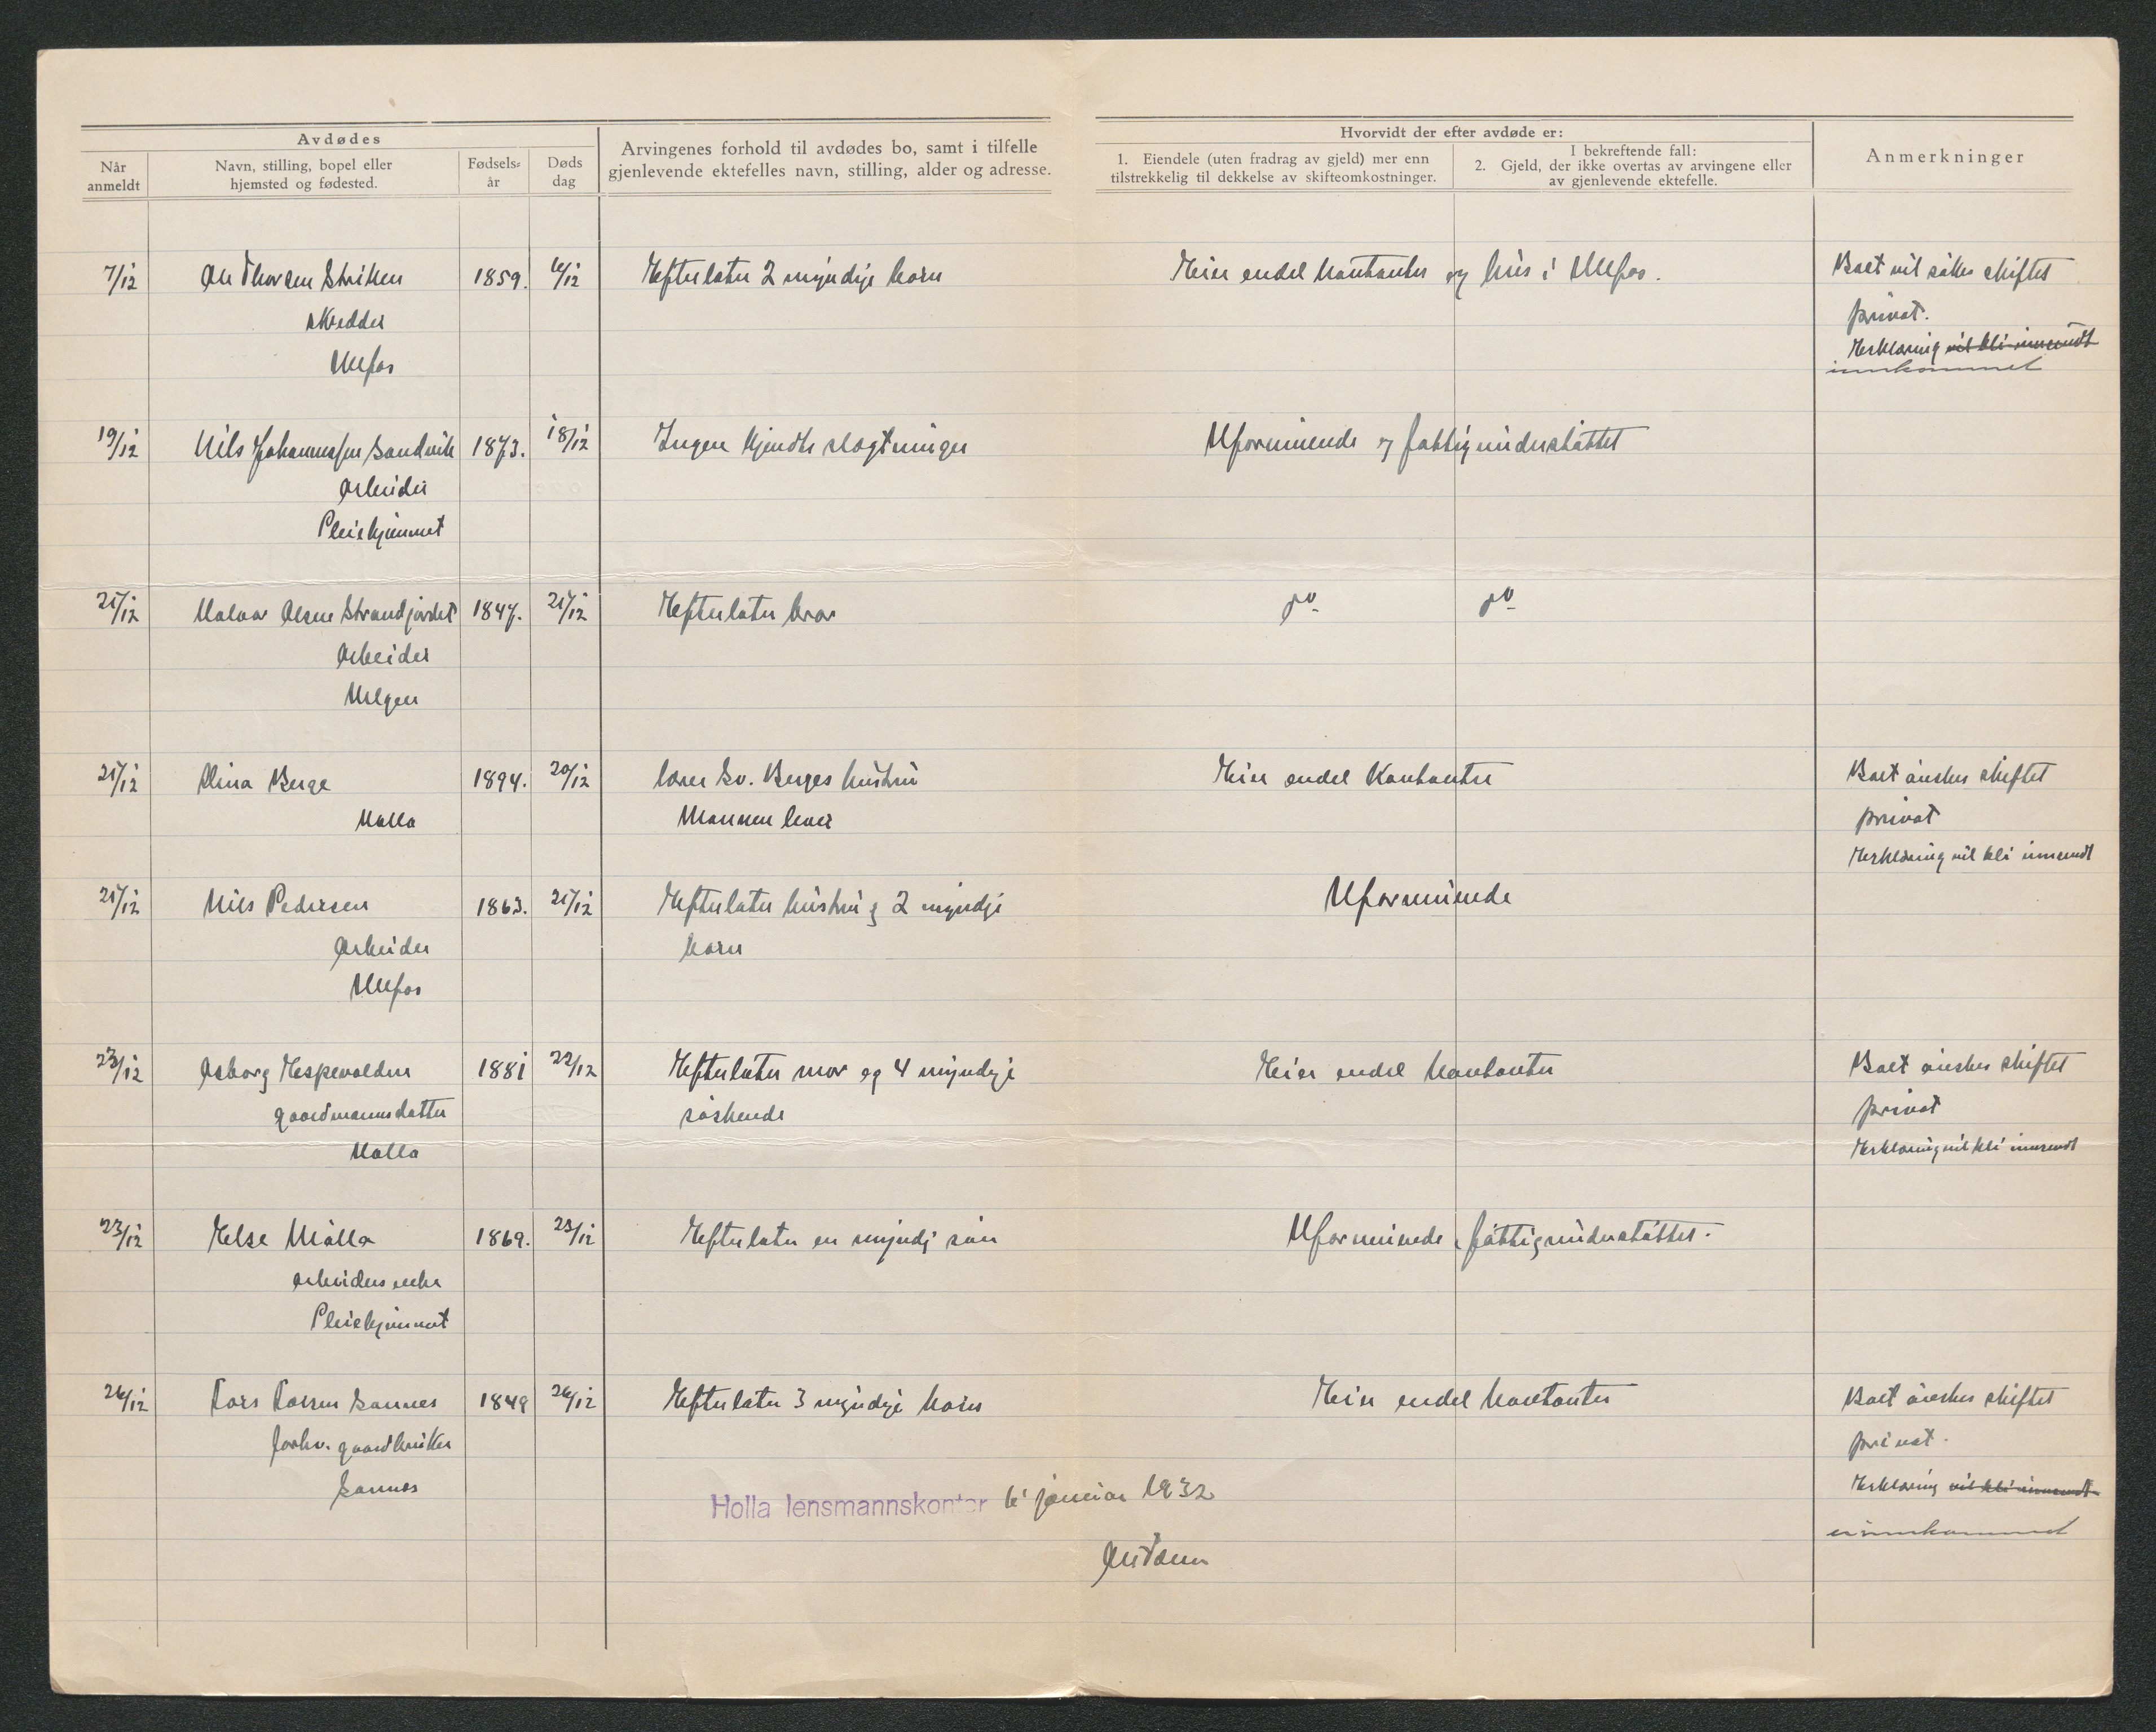 Avdødes
Når anmeldt
Navn, stilling, bopel eller hjemsted og fødested.
Fødsels= år
Døds dag
Arvingenes forhold til avdødes bo, samt i tilfelle
gjenlevende ektefelles navn, stilling, alder og adresse.
Hvorvidt der efter avdøde er:
1. Eiendele (uten fradrag av gjeld) mer enn
tilstrekkelig til dekkelse av skifteomkostninger.
I bekreftende fall:
2. Gjeld, der ikke overtas av arvingene eller
av gjenlevende ektefelle.
Anmerkninger
7/12 Ole Thorsen 1859. 6/12 Efterlater 2 myndige barn Eier endel kontanter og hus i Ulefos. Boet vil søkes skiftet
skredder privat.
Ulefos Erklæring vil bli innsendt
innkommet
19/12 Nils Johannessen Sandvik 1873. 18/12 Ingen kjendte slægtninger Uformuende og fattigunderstøttet
Arbeider
Pleiehjemmet
21/12 Halvor Olsen Strandjordet 1847. 21/12 Efterlater bror do do
Arbeider
Helgen
21/12 Berge 1894. 20/12 lærer Sv. Berges hustru Eier endel kontanter Boet ønskes skiftet
Holla Mannen lever privat
Erklæring vil bli innsendt
21/12 Nils Pedersen 1863. 21/12 Efterlater hustru og 2 myndige Uformuende
Arbeider barn
Ulefos
23/12 Asborg Hespevolden 1881 22/12 Efterlater mor og 4 myndige Eier endel kontanter Boet ønskes skiftet
gaardmannsdatter søskende privat
Holla Erklæring vil bli innsendt
23/12 Else Møller 1869. 23/12 Efterlater en myndig søn Uformuende, fattigunderstøttet.
arbeiders enke
Pleiehjemmet
26/12 Lars Larsen Sannes 1849 26/12 Efterlater 3 myndige barn Eier endel kontanter Boet ønskes skiftet
forhv. gaardbruker privat.
Sannes Erklæring vil bli innsendt
er innkommet
Holla lensmannskontor 6 januar 1932